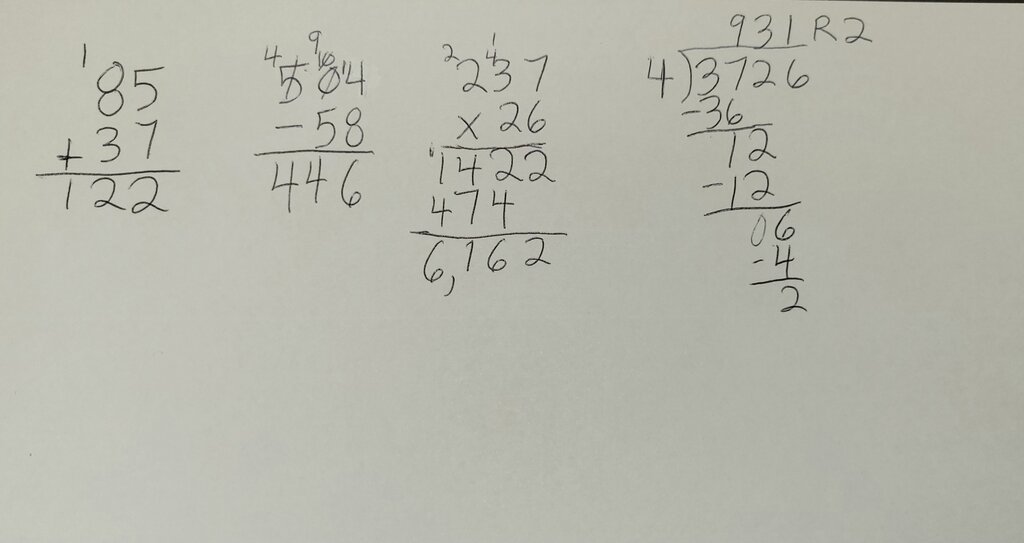 1
85
+ 37
122
4 9 10 14
504
- 58
446
2 1 4
237
x 26
1
1422
474
6,162
931 R2
4)3726
-36
12
-12
06
-4
2